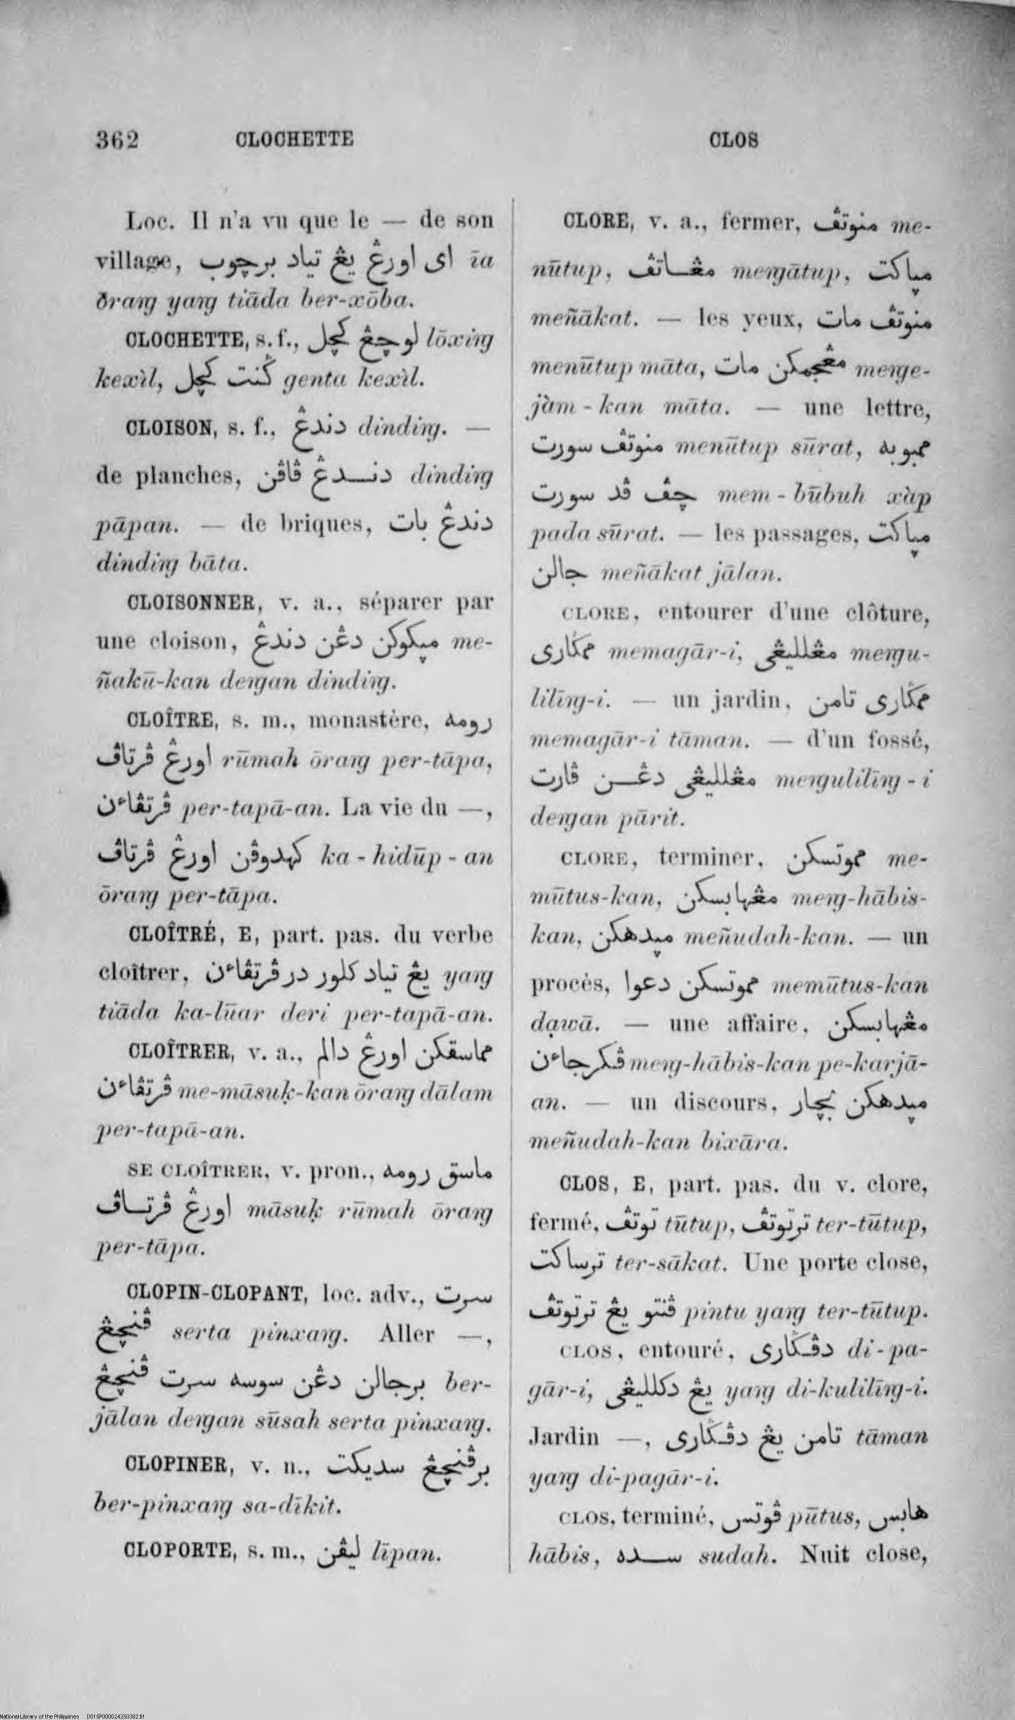 362 CLOCHETTE CLOS
Loc. Il n'a vu que le — de son
village, اى اورڠ يڠ تياد برچوب īa
ōraṅg yaṅg tiāda ber-xōba.
CLOCHETTE, s. f., لوچڠ كچل lōxiṅg
kexìl, ݢنت كچل genta kexìl.
CLOISON, s. f., دندڠ dindiṅg. —
de planches, دنـدڠ ڤاڤن dindiṅg
pāpan. — de briques, دندڠ بات
dindiṅg bāta.
CLOISONNER, v. a., séparer par
une cloison, مڽكوكن دڠن دندڠ me-
ñakū-kan deṅgan dindiṅg.
CLOÎTRE, s. m., monastère, رومه
اورڠ ڤرتاڤ rūmah ōraṅg per-tāpa,
ڤرتڤاءن per-tapā-an. La vie du —,
كهدوڤن اورڠ ڤرتاڤ ka-hidūp-an
ōraṅg per-tāpa.
CLOÎTRÉ, E, part. pas. du verbe
cloîtrer, يڠ تياد كلور در ڤرتڤاءن yaṅg
tiāda ka-lūar deri per-tapā-an.
CLOÎTRER, v. a., مماسقكن اورڠ دالم
ڤرتڤاءن me-māsuḳ-kan ōraṅg dālam
per-tapā-an.
SE CLOÎTRER, v. pron., ماسق رومه
اورڠ ڤرتـاڤ māsuḳ rūmah ōraṅg
per-tāpa.
CLOPIN-CLOPANT, loc. adv., سرت
ڤنچڠ serta pinxaṅg. Aller —,
برجالن دڠن سوسه سرت ڤنچڠ ber-
jālan deṅgan sūsah serta pinxaṅg.
CLOPINER, v. n., برڤنچڠ سديكت
ber-pinxaṅg sa-dīkit.
CLOPORTE, s. m., ليڤن līpan.
CLORE, v. a., fermer, منوتڤ me-
nūtup, مڠـاتڤ meṅgātup, مڽاكت
meñākat. — les yeux, منوتڤ مات
menūtup māta, مڠجمكن مات meṅge-
jàm-kan māta. — une lettre,
منوتڤ سورت menūtup sūrat, ممبوبه
چڤ ڤد سورت mem-būbuh xàp
pada sūrat. — les passages, مڽاكت
جالن meñākat jālan.
CLORE, entourer d'une clôture,
ممݢارى memagār-i, مڠلليڠى meṅgu-
lilīṅg-i. — un jardin, ممݢارى تامن
memagār-i tāman. — d'un fossé,
مڠلليڠى دڠـن ڤارت meṅgulilīṅg-i
deṅgan pārit.
CLORE, terminer, مموتسكن me-
mūtus-kan, مڠهابسكن meṅg-hābis-
kan, مڽدهكن meñudah-kan. — un
procès, مموتسكن دعوا memūtus-kan
dạwā. — une affaire, مڠهابسكن
ڤكرجاءن meṅg-hābis-kan pe-karjā-
an. — un discours, مڽدهكن بچار
meñudah-kan bixāra.
CLOS, E, part. pas. du v. clore,
fermé, توتڤ tūtup, ترتوتڤ ter-tūtup,
ترساكت ter-sākat. Une porte close,
ڤنتو يڠ ترتوتڤ pintu yaṅg ter-tūtup.
CLOS, entouré, دڤـݢارى di-pa-
gār-i, يڠ دكلليڠى yaṅg di-kulilīṅg-i.
Jardin —, تامن يڠ دڤـݢارى tāman
yaṅg di-pagār-i.
CLOS, terminé, ڤوتس pūtus, هابس
hābis, سـده sudah. Nuit close,
National Library of the Philippines